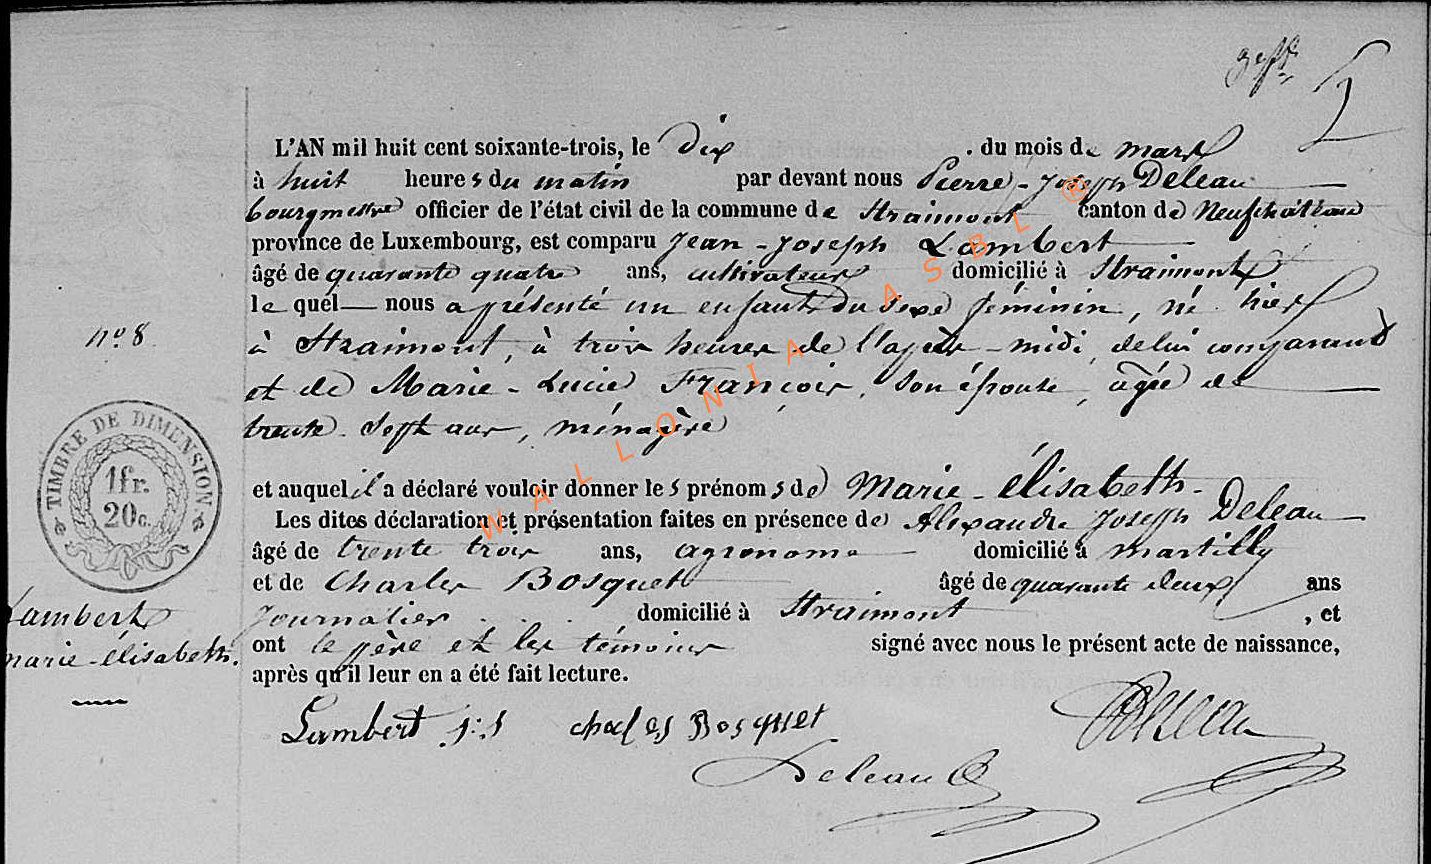 2
L'AN mil huit cent soixante-trois, le Dix . du mois de mars
à huit heures du matin par devant nous Pierre-Joseph Deleau
bourgmestre officier de l'état civil de la commune de Straimont canton de Neufchâteau
province de Luxembourg, est comparu Jean-Joseph Lambert
âgé de quarante quatre ans, cultivateur domicilié à Straimont
lequel nous a présenté un enfant du sexe féminin, né hier
n.o 8
à Straimont, à trois heures de l'après-midi, de lui comparant
et de Marie-Lucie François, son épouse, agée de
trente-sept ans, ménagère
et auquel il a déclaré vouloir donner les prénoms de Marie-élisabeth.
Les dites déclaration et présentation faites en présence de Alexandre Joseph Deleau
âgé de trente trois ans, agronome domicilié à Martilly
et de Charles Bosquet âgé de quarante deux ans
journalier . . . . domicilié à Straimont , et
ont le père et les témoins signé avec nous le présent acte de naissance,
après qu'il leur en a été fait lecture.
TIMBRE DE DIMENSION
1fr.
20c.
Lambert
marie-élisabeth.
Lambert j:j charles Bosquet Deleau
Deleau
WALLONIA ASBL ®